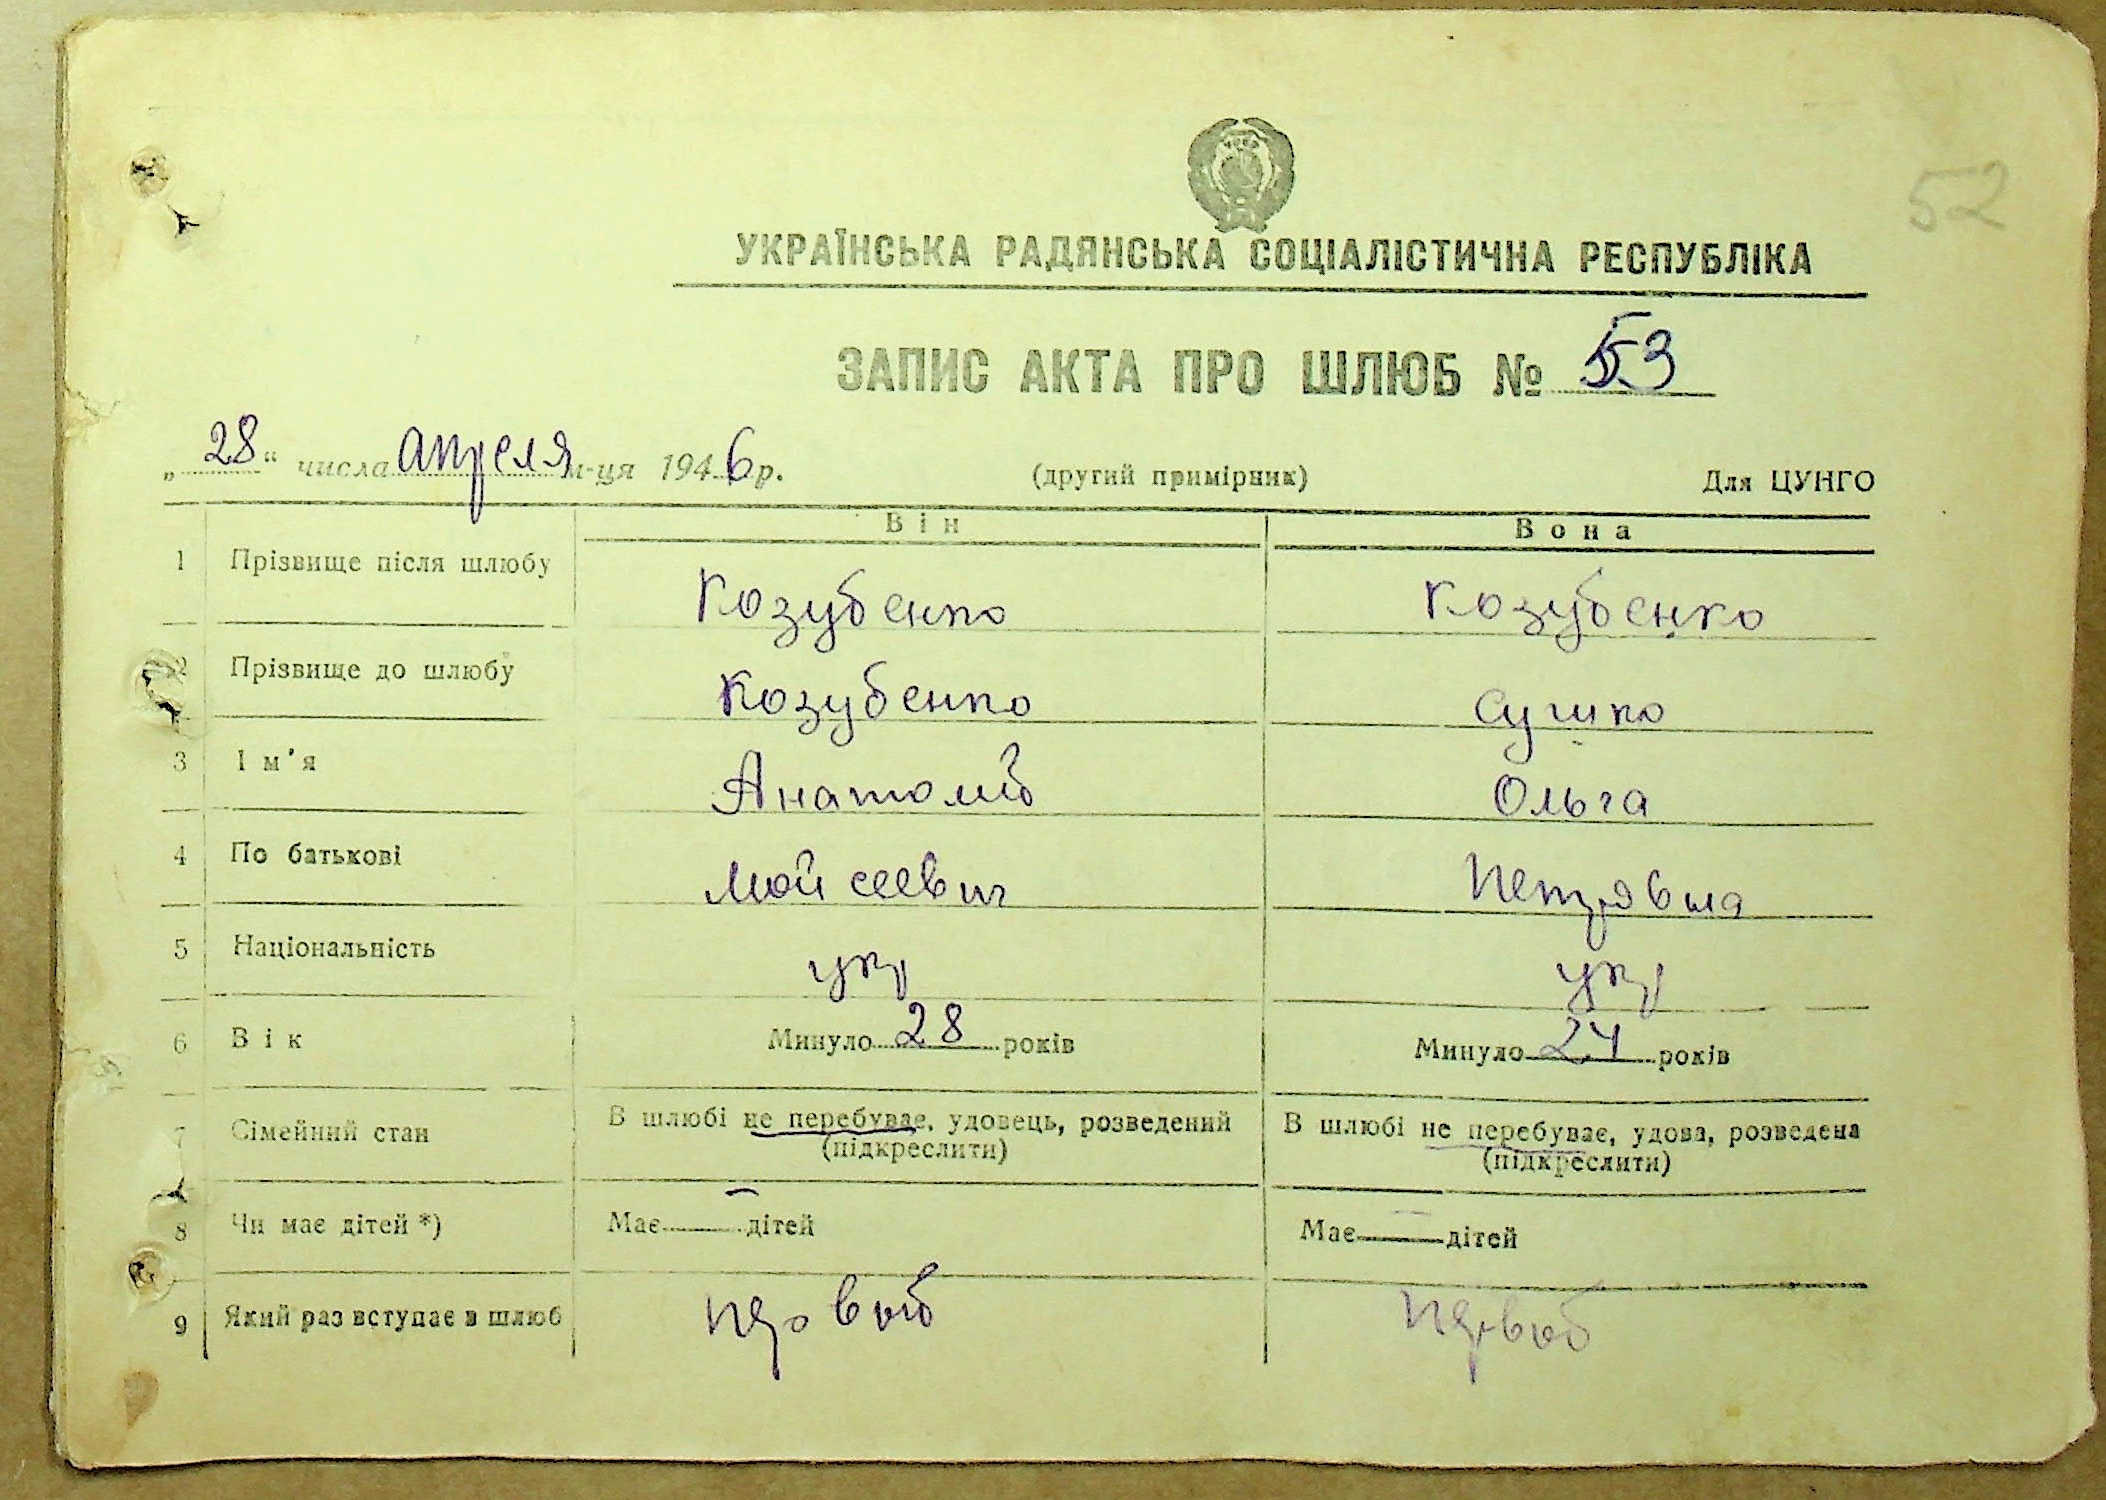 52
УКРАЇНСЬКА РАДЯНСЬКА СОЦІАЛІСТИЧНА РЕСПУБЛІКА
ЗАПИС АКТА ПРО ШЛЮБ № 53
„28“ числа апреля м-ця 1946 р. (другий примірник) Для ЦУНГО
Він Вона
1 Прізвище після шлюбу Козубенко Козубенко
2 Прізвище до шлюбу Козубенко Сушко
3 Ім'я Анатолий Ольга
4 По батькові Мойсеевич Петровна
5 Національність укр укр
6 Вік Минуло 28 років Минуло 24 років
7 Сімейний стан В шлюбі не перебуває, удовець, розведений В шлюбі не перебуває, удова, розведена
(підкреслити) (підкреслити)
8 Чи має дітей *) Має — дітей Має — дітей
9 Який раз вступає в шлюб первый первый